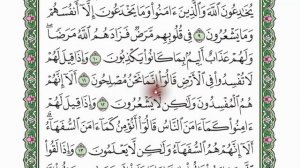 يُخَـٰدِعُونَ ٱللَّهَ وَٱلَّذِينَ ءَامَنُوا۟ وَمَا يَخْدَعُونَ إِلَّآ أَنفُسَهُمْ
وَمَا يَشْعُرُونَ ٩ فِى قُلُوبِهِم مَّرَضٌ فَزَادَهُمُ ٱللَّهُ مَرَضًا ۖ
وَلَهُمْ عَذَابٌ أَلِيمٌۢ بِمَا كَانُوا۟ يَكْذِبُونَ ١٠ وَإِذَا قِيلَ لَهُمْ
لَا تُفْسِدُوا۟ فِى ٱلْأَرْضِ قَالُوٓا۟ إِنَّمَا نَحْنُ مُصْلِحُونَ ١١ أَلَآ
إِنَّهُمْ هُمُ ٱلْمُفْسِدُونَ وَلَـٰكِن لَّا يَشْعُرُونَ ١٢ وَإِذَا قِيلَ لَهُمْ
ءَامِنُوا۟ كَمَآ ءَامَنَ ٱلنَّاسُ قَالُوٓا۟ أَنُؤْمِنُ كَمَآ ءَامَنَ ٱلسُّفَهَآءُ ۗ
أَلَآ إِنَّهُمْ هُمُ ٱلسُّفَهَآءُ وَلَـٰكِن لَّا يَعْلَمُونَ ١٣ وَإِذَا لَقُوا۟